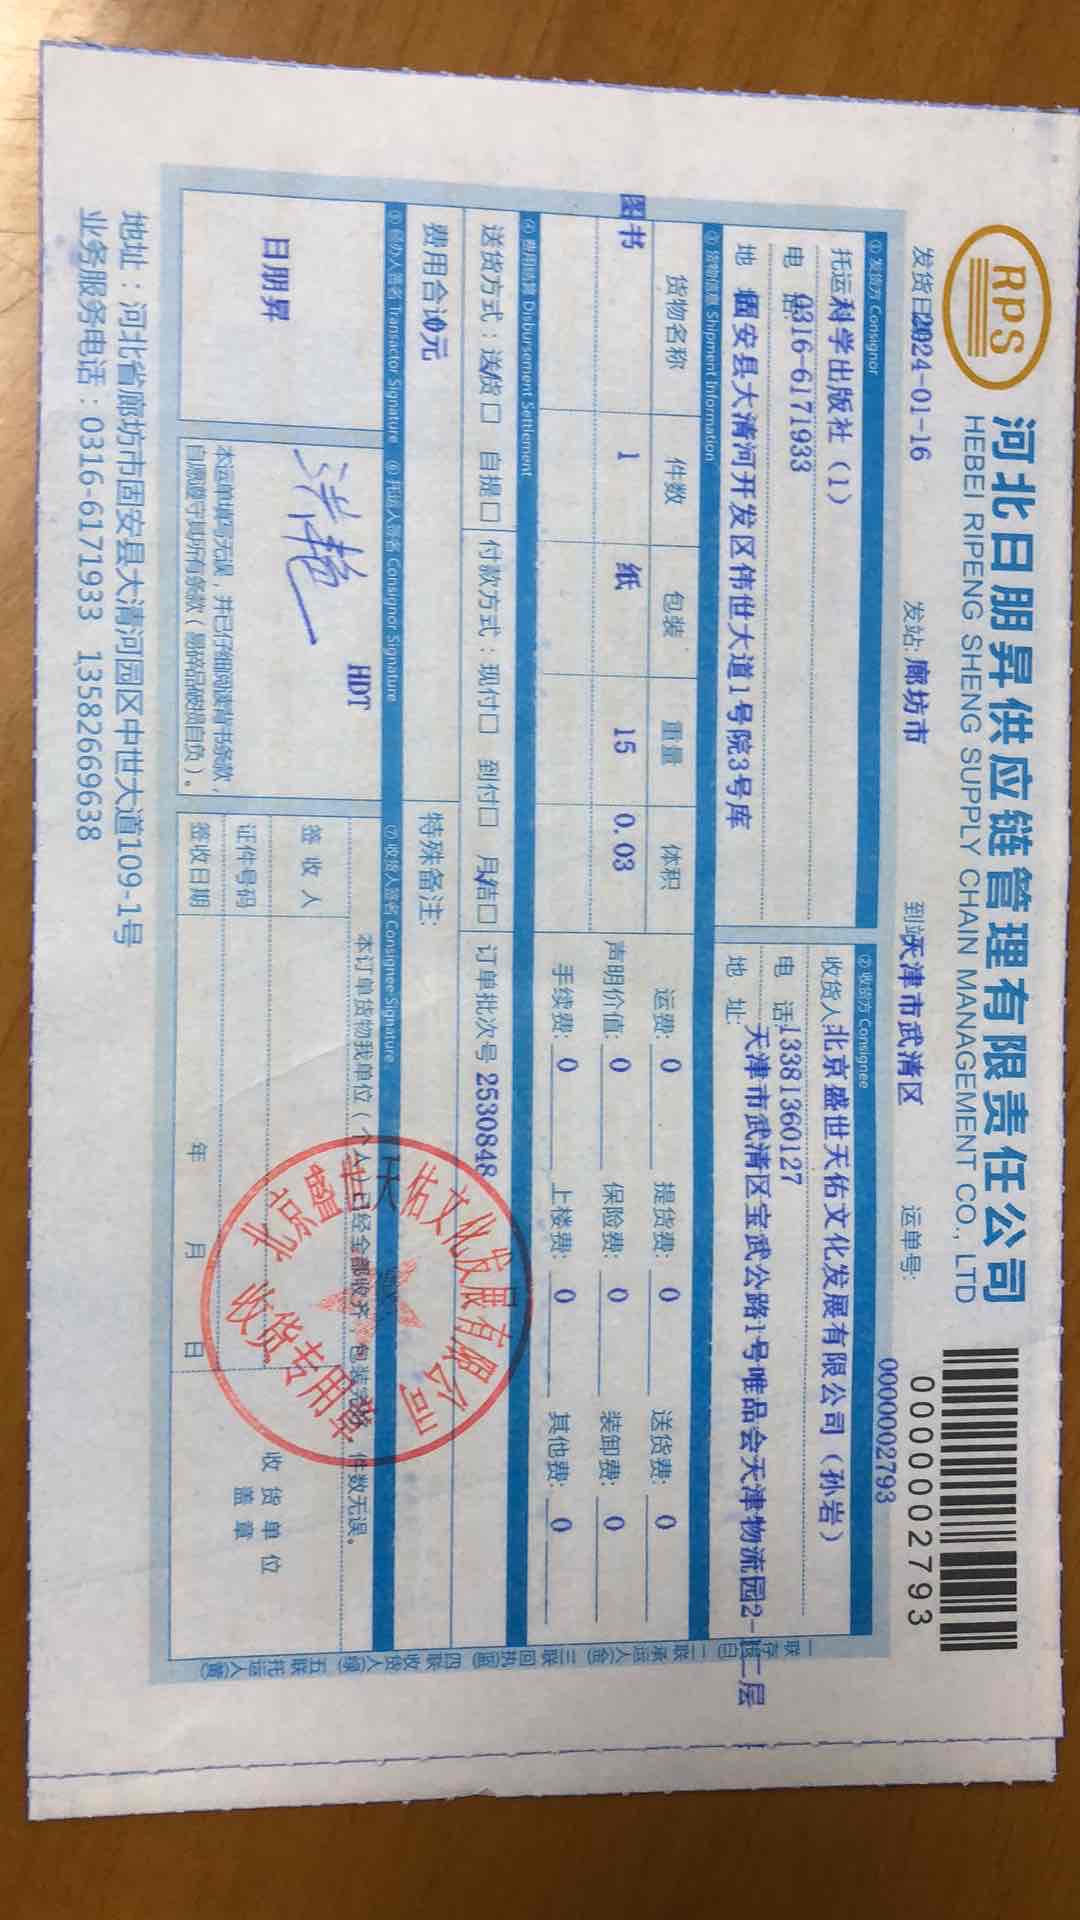 RPS
河北日朋昇供应链管理有限责任公司
HEBEI RIPENG SHENG SUPPLY CHAIN MANAGEMENT CO., LTD
0000002793
发货日 2024-01-16 发站: 廊坊市 到站 天津市武清区 运单号: 0000002793
① 发货方 Consignor ② 收货方 Consignee
托运 科学出版社（1） 收货人 北京盛世天佑文化发展有限公司（孙岩）
电 话: 0316-6171933 电 话: 13381360127
地 址 固安县大清河开发区伟世大道1号院3号库 地 址: 天津市武清区宝武公路1号唯品会天津物流园2-1二层
③ 货物信息 Shipment Information
货物名称 件数 包装 重量 体积 运费: 0 提货费: 0 送货费: 0
图书 1 纸 15 0.03 声明价值: 0 保险费: 0 装卸费: 0
手续费: 0 上楼费: 0 其他费: 0
④ 费用结算 Disbursement Settlement
送货方式：送货口 自提口 付款方式：现付口 到付口 月结口 订单批次号 2530848
费用合计 0元 特殊备注:
⑤ 经办人签名 Transactor Signature ⑥ 托运人签名 Consignor Signature ⑦ 收货人签名 Consignee Signature
日朋昇
HDT
本运单填写无误，并已仔细阅读背书条款，
自愿遵守其所有条款（易碎品破损自负）。
本订单货物我单位（个人）已经全部收齐，包装完好，件数无误。
签 收 人
证件号码
签收日期 年 月 日
收 货 单 位
盖 章
北京盛世天佑文化发展有限公司
收货专用章
地址：河北省廊坊市固安县大清河园区中世大道109-1号
业务服务电话：0316-6171933 13582669638
一联存根(白) 二联承运人(金) 三联回执(蓝) 四联收货人(绿) 五联托运人(黄)